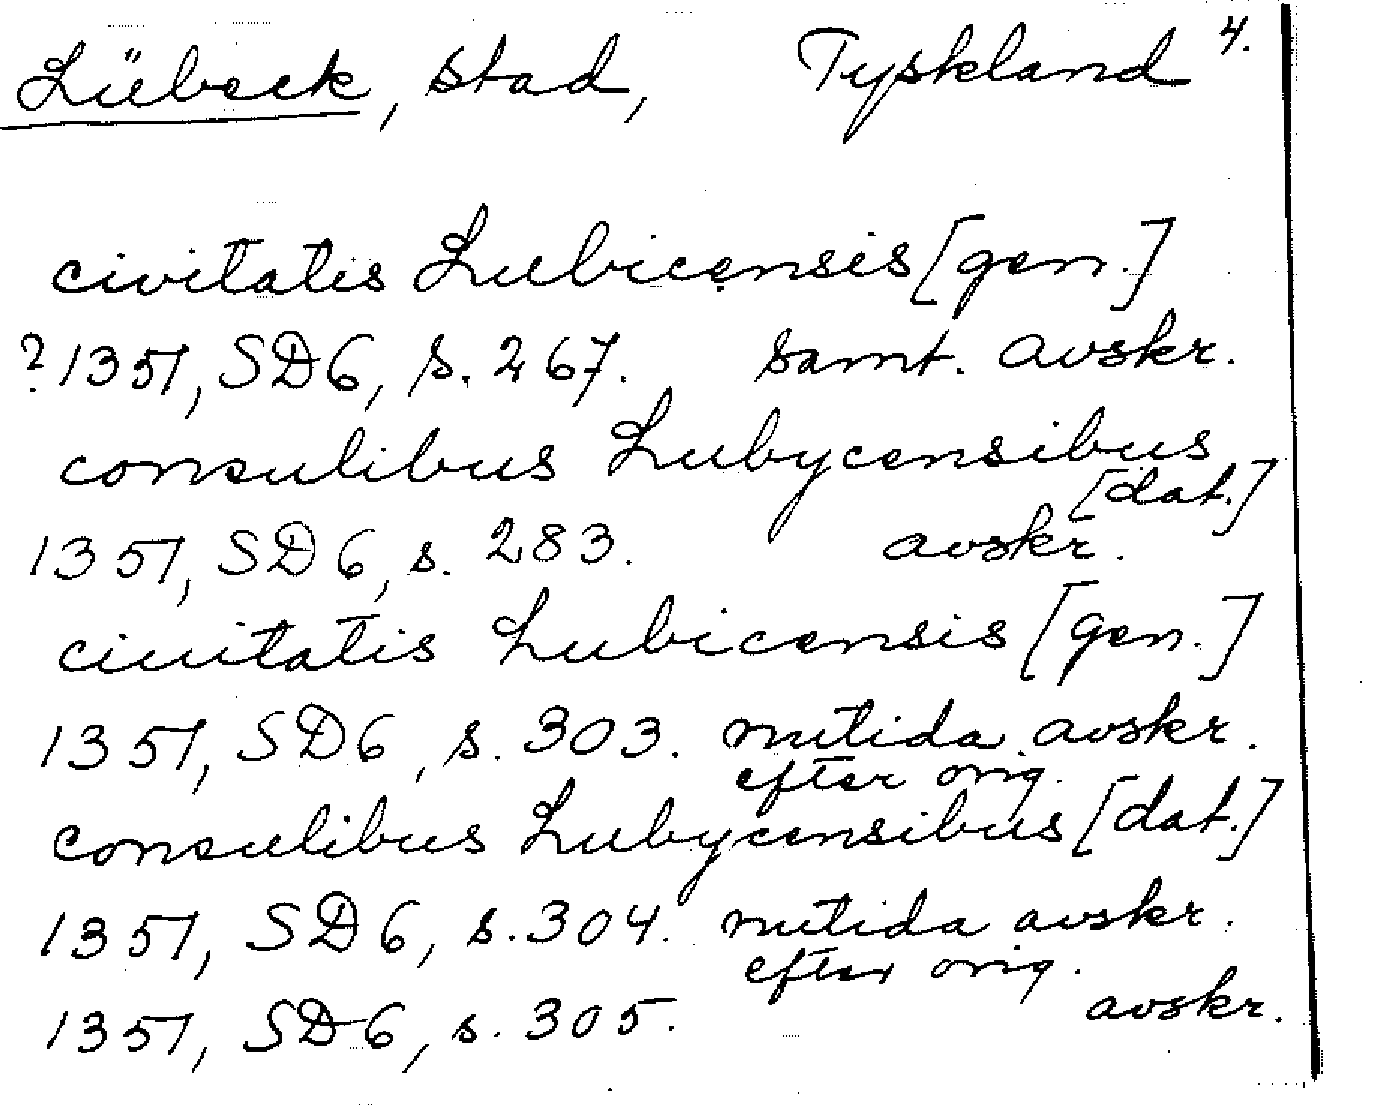 Lübeck, stad, Tyskland 4.
civitatis Lubicensis [gen.]
? 1351, SD6, s. 267. samt. avskr.
consulibus Lubycensibus
[dat.]
1351, SD6, s. 283. avskr.
ciuitatis Lubicensis [gen.]
1351, SD6, s. 303. nutida avskr.
efter orig.
consulibus Lubycensibus [dat.]
1351, SD6, s. 304. nutida avskr.
efter orig.
1351, SD6, s. 305. avskr.